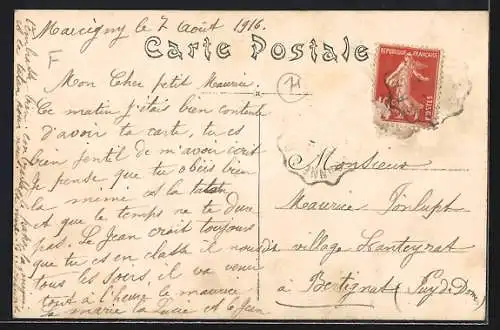 Marcigny le 7 Août 1916.
Carte Postale
F
Mon Cher petit Maurice.
Ce matin j'étais bien contente
d'avoir ta carte, tu es
bien gentil de m'avoir écrit
Je pense que tu obéis bien
la mémé et la tata
et que le temps ne te dure
pas. Le Jean croit toujours
que tu es en classe il nous dit
tous les soirs, il va venir
tout à l'heure le maurice
la marie la Lucie et le Jean
H
REPUBLIQUE FRANÇAISE
POSTES
Monsieur
Maurice Fonlupt
village Lanteyrat
à Bertignat (Puy de Dôme)